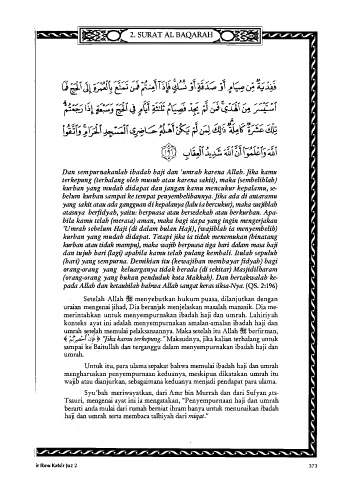 2. SURAT AL BAQARAH
فَفِدْيَةٌ مِّن صِيَامٍ أَوْ صَدَقَةٍ أَوْ نُسُكٍ فَإِذَا أَمِنتُمْ فَمَن تَمَتَّعَ بِالْعُمْرَةِ إِلَى الْحَجِّ فَمَا
اسْتَيْسَرَ مِنَ الْهَدْيِ فَمَن لَّمْ يَجِدْ فَصِيَامُ ثَلَاثَةِ أَيَّامٍ فِي الْحَجِّ وَسَبْعَةٍ إِذَا رَجَعْتُمْ
تِلْكَ عَشَرَةٌ كَامِلَةٌ ذَٰلِكَ لِمَن لَّمْ يَكُنْ أَهْلُهُ حَاضِرِي الْمَسْجِدِ الْحَرَامِ وَاتَّقُوا
اللَّهَ وَاعْلَمُوا أَنَّ اللَّهَ شَدِيدُ الْعِقَابِ ﴿١٩٦﴾
Dan sempurnakanlah ibadah haji dan 'umrah karena Allah. Jika kamu
terkepung (terhalang oleh musuh atau karena sakit), maka (sembelihlah)
kurban yang mudah didapat dan jangan kamu mencukur kepalamu, se-
belum kurban sampai ke tempat penyembelihannya. Jika ada di antaramu
yang sakit atau ada gangguan di kepalanya (lalu ia bercukur), maka wajiblah
atasnya berfidyah, yaitu: berpuasa atau bersedekah atau berkurban. Apa-
bila kamu telah (merasa) aman, maka bagi siapa yang ingin mengerjakan
'Umrah sebelum Haji (di dalam bulan Haji), (wajiblah ia menyembelih)
kurban yang mudah didapat. Tetapi jika ia tidak menemukan (binatang
kurban atau tidak mampu), maka wajib berpuasa tiga hari dalam masa haji
dan tujuh hari (lagi) apabila kamu telah pulang kembali. Itulah sepuluh
(hari) yang sempurna. Demikian itu (kewajiban membayar fidyah) bagi
orang-orang yang keluarganya tidak berada (di sekitar) Masjidilharam
(orang-orang yang bukan penduduk kota Makkah). Dan bertakwalah ke-
pada Allah dan ketahuilah bahwa Allah sangat keras siksa-Nya. (QS. 2:196)
Setelah Allah ﷻ menyebutkan hukum puasa, dilanjutkan dengan
uraian mengenai jihad, Dia beranjak menjelaskan masalah manasik. Dia me-
merintahkan untuk menyempurnakan ibadah haji dan umrah. Lahiriyah
konteks ayat ini adalah menyempurnakan amalan-amalan ibadah haji dan
umrah setelah memulai pelaksanaannya. Maka setelah itu Allah ﷻ berfirman,
﴿ فَإِنْ أُحْصِرْتُمْ ﴾ "Jika kamu terkepung." Maksudnya, jika kalian terhalang untuk
sampai ke Baitullah dan terganggu dalam menyempurnakan ibadah haji dan
umrah.
Untuk itu, para ulama sepakat bahwa memulai ibadah haji dan umrah
mengharuskan penyempurnaan keduanya, meskipun dikatakan umrah itu
wajib atau dianjurkan, sebagaimana keduanya menjadi pendapat para ulama.
Syu'bah meriwayatkan, dari Amr bin Murrah dan dari Sufyan ats-
Tsauri, mengenai ayat ini ia mengatakan, "Penyempurnaan haji dan umrah
berarti anda mulai dari rumah berniat ihram hanya untuk menunaikan ibadah
haji dan umrah serta membaca talbiyah dari miqat."
ir Ibnu Katsir Juz 2
373